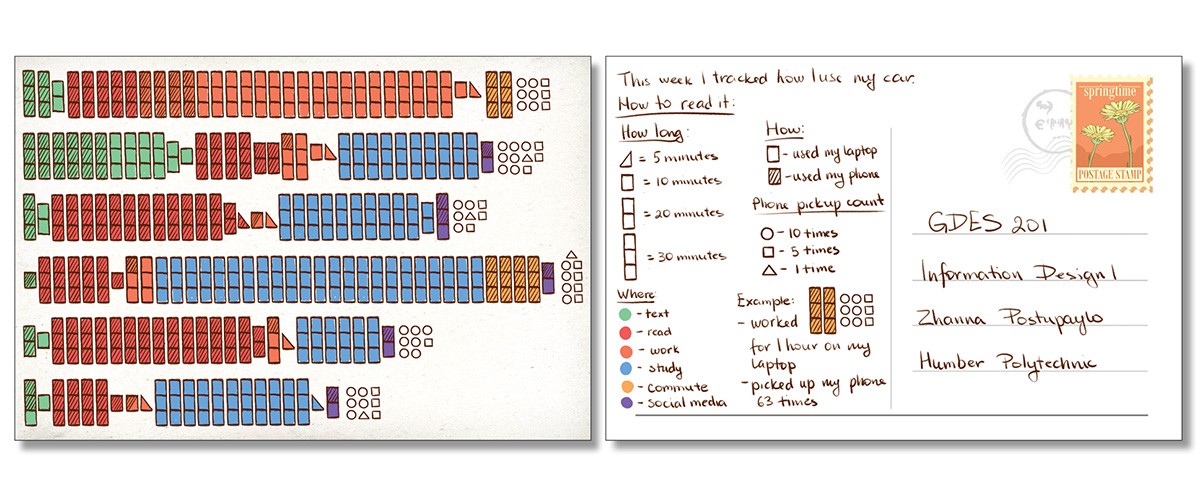 This week I tracked how I use my car.
How to read it:
How long:
= 5 minutes
= 10 minutes
= 20 minutes
= 30 minutes
Where:
- text
- read
- work
- study
- commute
- social media
How:
- used my laptop
- used my phone
Phone pickup count
- 10 times
- 5 times
- 1 time
Example:
- worked
for 1 hour on my
laptop
- picked up my phone
63 times
springtime
POSTAGE STAMP
GDES 201
Information Design 1
Zhanna Postupaylo
Humber Polytechnic